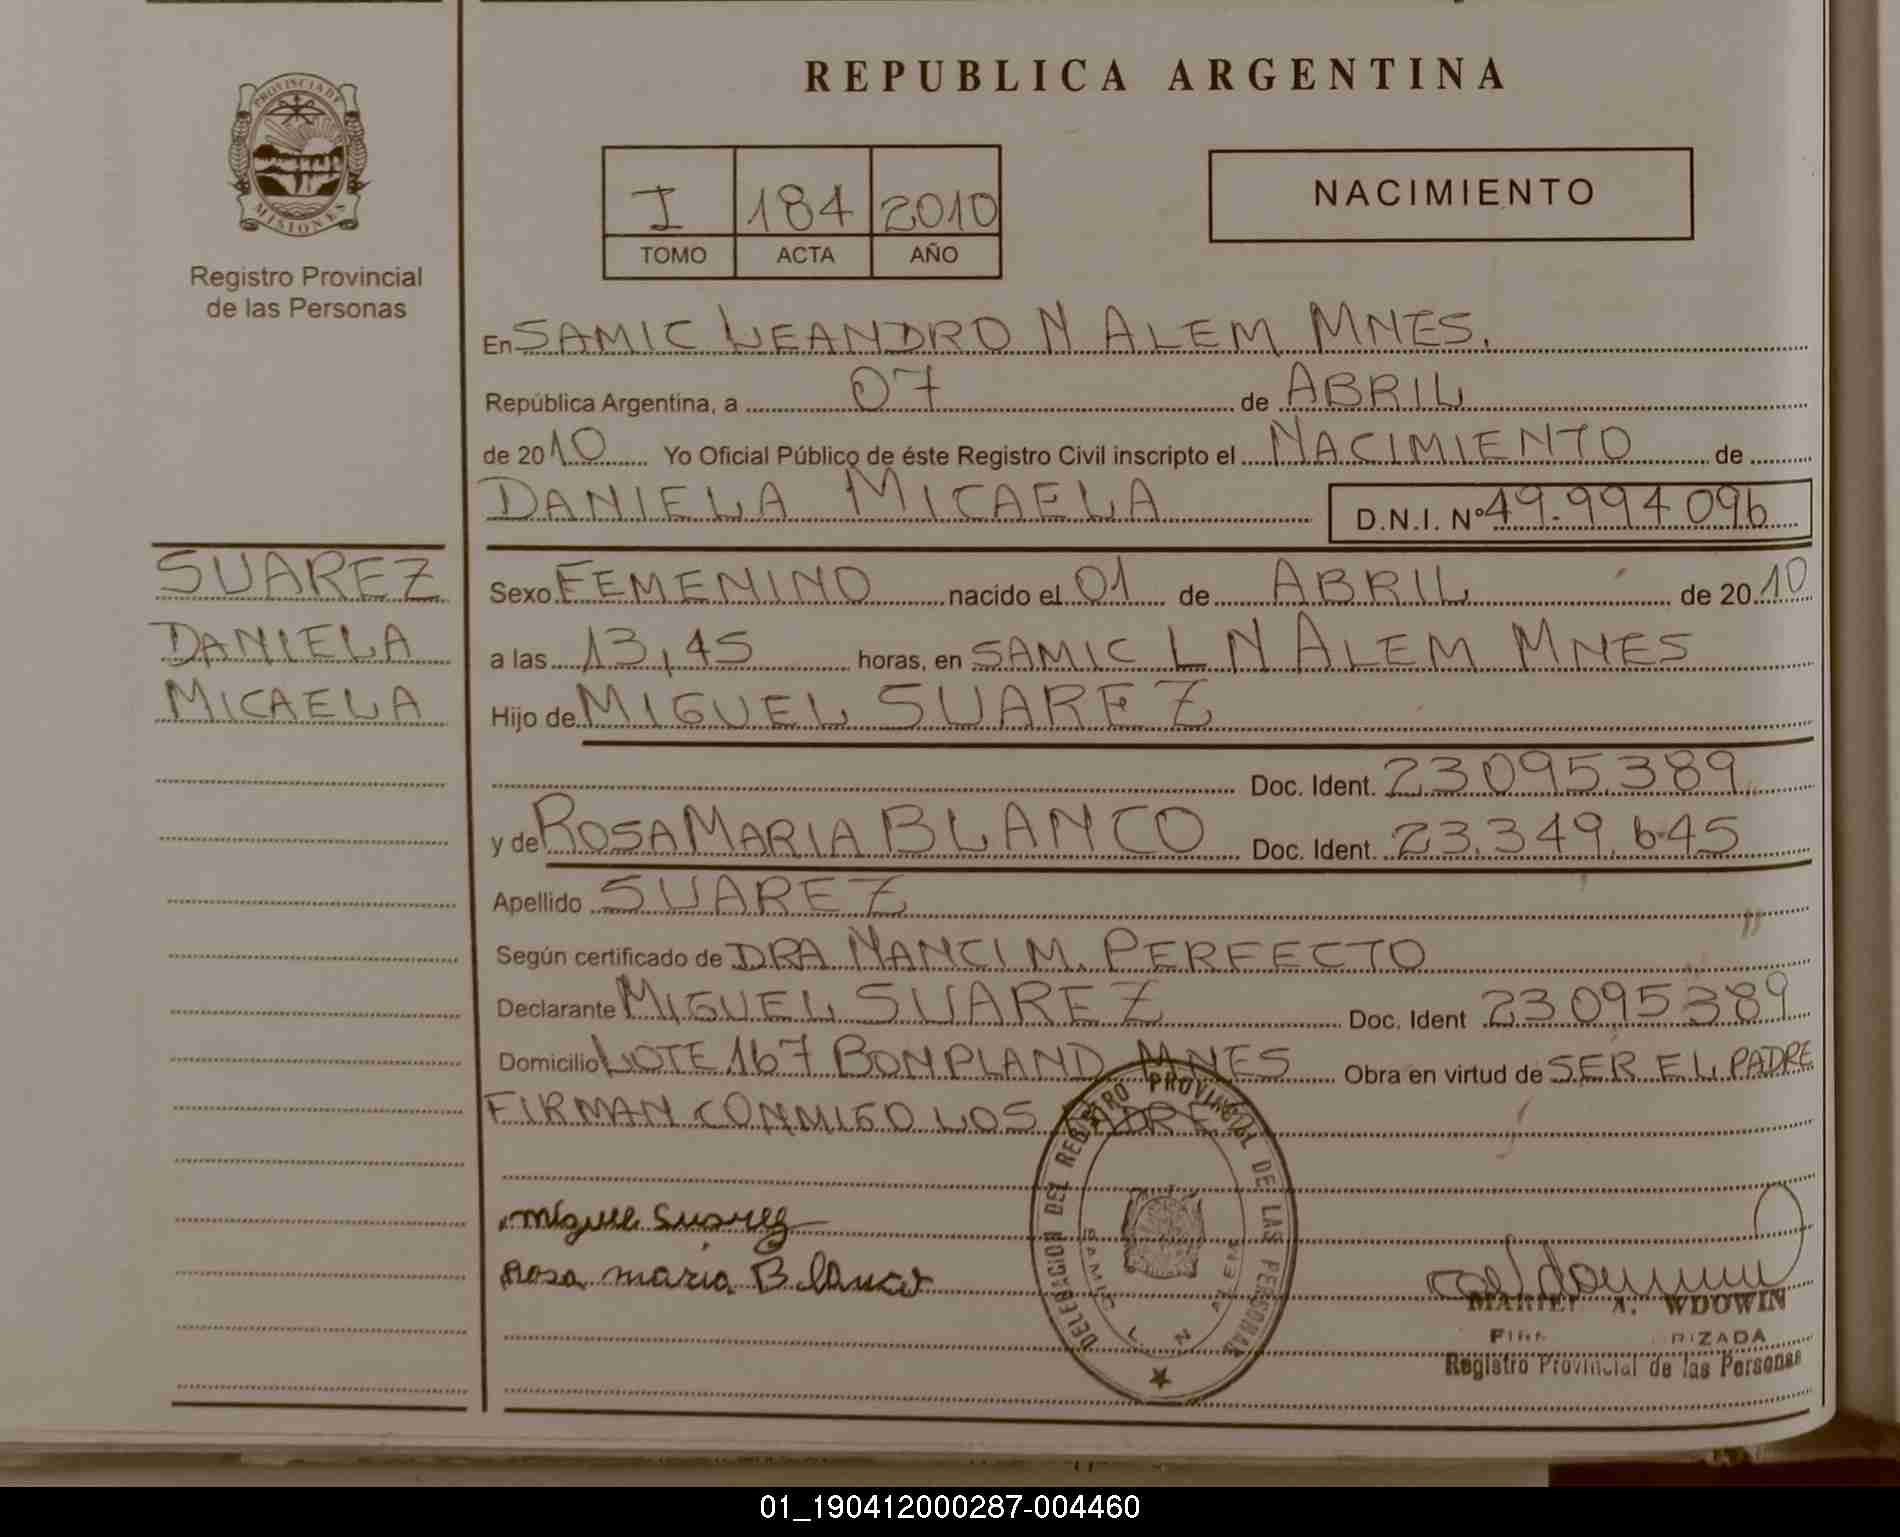 REPUBLICA ARGENTINA
PROVINCIA DE MISIONES
Registro Provincial
de las Personas
I 184 2010
TOMO ACTA AÑO
NACIMIENTO
En SAMIC LEANDRO N ALEM MNES.
República Argentina, a 07 de ABRIL
de 2010 Yo Oficial Público de éste Registro Civil inscripto el NACIMIENTO de
DANIELA MICAELA D.N.I. Nº 49.994.096
SUAREZ
DANIELA
MICAELA
Sexo FEMENINO nacido el 01 de ABRIL de 2010
a las 13,45 horas, en SAMIC L N ALEM MNES
Hijo de MIGUEL SUAREZ
Doc. Ident. 23095.389
y de ROSA MARIA BLANCO Doc. Ident. 23.349.645
Apellido SUAREZ
Según certificado de DRA NANCI M. PERFECTO
Declarante MIGUEL SUAREZ Doc. Ident 23095389
Domicilio LOTE 167 BONPLAND MNES Obra en virtud de SER EL PADRE
FIRMAN CONMIGO LOS
miguel Suarez
Rosa maria Blanco
DELEGACION DEL REGISTRO PROVINCIAL DE LAS PERSONAS
SAMIC L. N ALEM
MARIEL A. WDOWIN
Registro Provincial de las Personas
01_190412000287-004460